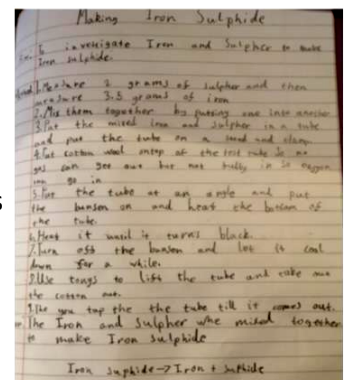 Making Iron Sulphide
To investigate Iron and Sulpher to make
Iron sulphide.
1. Measure 2 grams of sulpher and then
measure 3.5 grams of iron
2. Mix them together by putting one into another
3. Put the mixed iron and sulpher in a tube
and put the tube on a stand and clamp
4. Put cotton wool ontop of the test tube so no
gas can get out but not fully in so oxygen
can go in
5. Put the tube at an angle and put
the bunsen on and heat the bottom of
the tube.
6. Heat it until it turns black.
7. Turn off the bunsen and let it cool
down for a while.
8. Use tongs to lift the tube and take out
the cotton out.
9. The you tap the the tube till it comes out.
The Iron and Sulpher whe mixed together
to make Iron Sulphide
Iron suphide → Iron + Sulphide
s